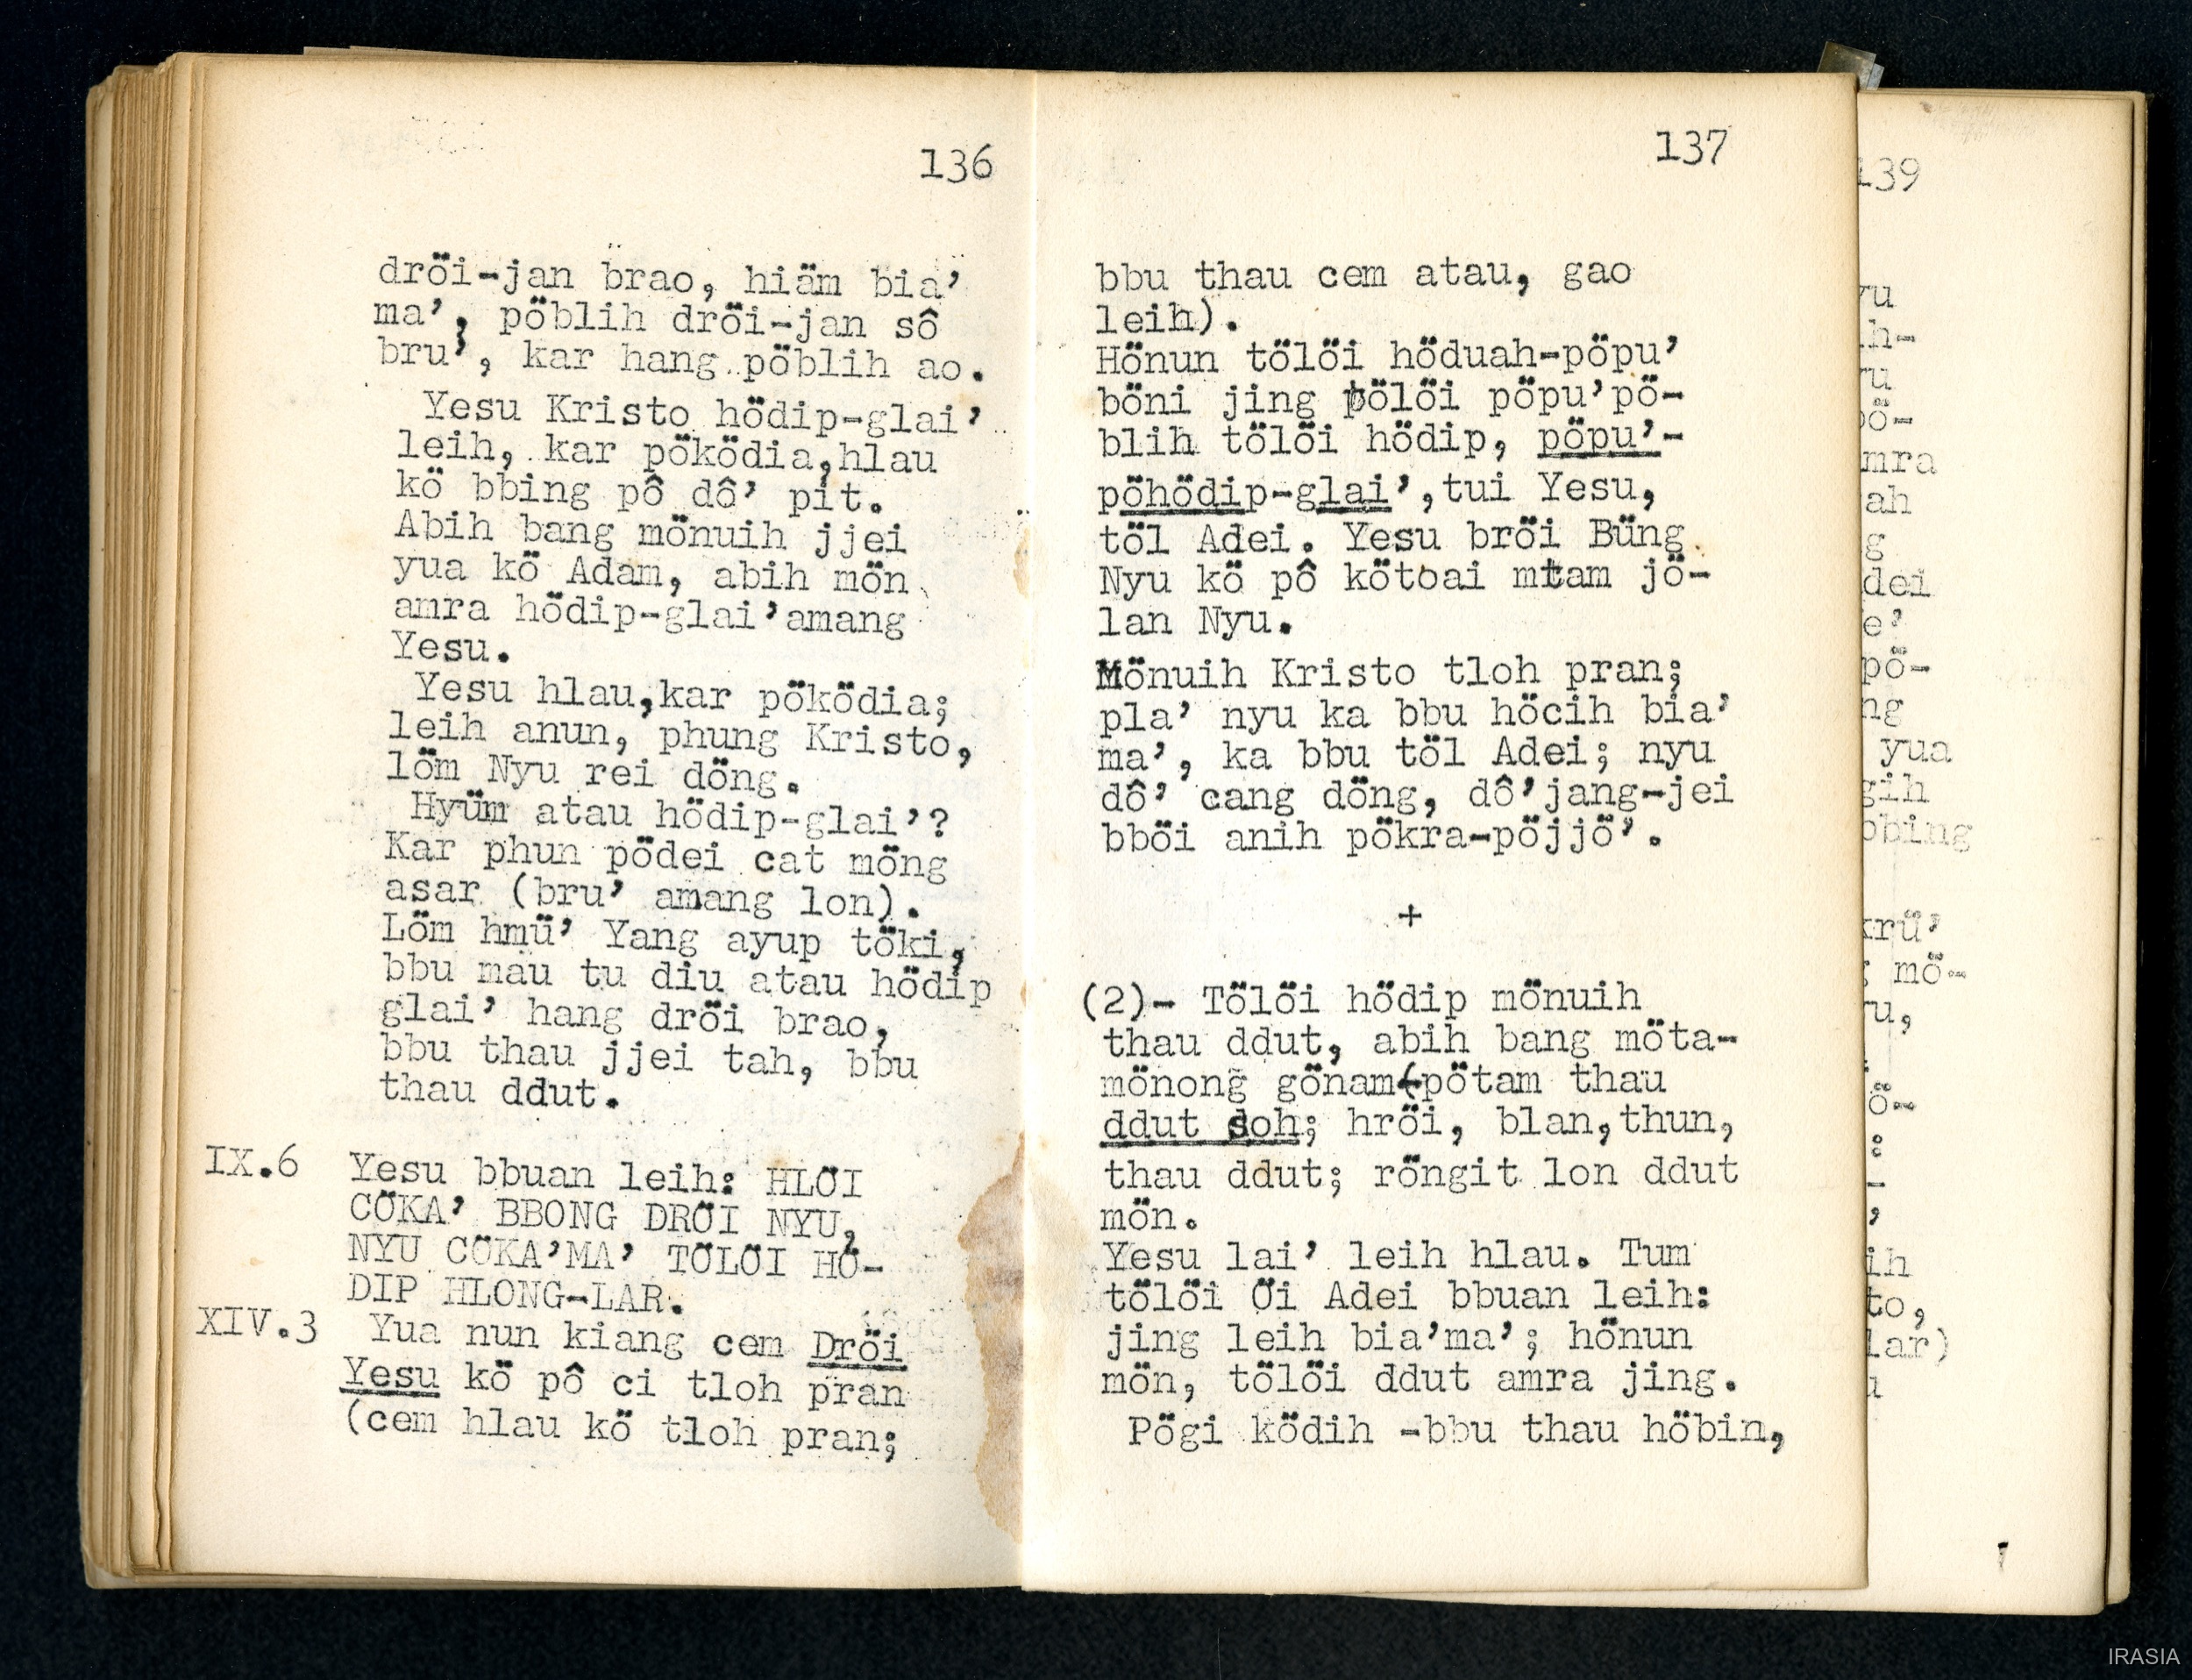 136
dröi-jan brao, hiäm bia’
ma’, pöblih dröi-jan sô
bru’, kar hang pöblih ao.
Yesu Kristo hödip-glai’
leih, kar pöködia,hlau
kö bbing pô dô’ pit.
Abih bang mönuih jjei
yua kö Adam, abih mön
amra hödip-glai’amang
Yesu.
Yesu hlau,kar pöködia;
leih anun, phung Kristo,
löm Nyu rei döng.
Hyüm atau hödip-glai’?
Kar phun pödei cat möng
asar (bru’ amang lon).
Löm hmü’ Yang ayup töki,
bbu mäu tu diu atau hödip
glai’ hang dröi brao,
bbu thau jjei tah, bbu
thau ddut.
IX.6 Yesu bbuan leih: HLÖI
CÖKA’ BBONG DRÖI NYU,
NYU CÖKA’MA’ TÖLÖI HÖ-
DIP HLONG-LAR.
XIV.3 Yua nun kiang cem Dröi
Yesu kö pô ci tloh pran
(cem hlau kö tloh pran;
137
bbu thau cem atau, gao
leih).
Hönun tölöi höduah-pöpu’
böni jing tölöi pöpu’pö-
blih tölöi hödip, pöpu’-
pöhödip-glai’,tui Yesu,
töl Adei. Yesu bröi Büng
Nyu kö pô kötoai mtam jö-
lan Nyu.
Mönuih Kristo tloh pran;
pla’ nyu ka bbu höcih bia’
ma’, ka bbu töl Adei; nyu
dô’ cang döng, dô’jang-jei
bböi anih pökra-pöjjö’.
+
(2)- Tölöi hödip mönuih
thau ddut, abih bang möta-
mönong gönam-pötam thau
ddut soh; hröi, blan,thun,
thau ddut; röngit lon ddut
mön.
Yesu lai’ leih hlau. Tum
tölöi Öi Adei bbuan leih:
jing leih bia’ma’; hönun
mön, tölöi ddut amra jing.
Pögi ködih -bbu thau höbin,
139
yu
ih-
ru
pö-
mra
ah
g
dei
e’
pö-
ng
yua
gih
bbing
krü’
mö-
u,
ö-
:
-
,
ih
to,
lar)
u
IRASIA